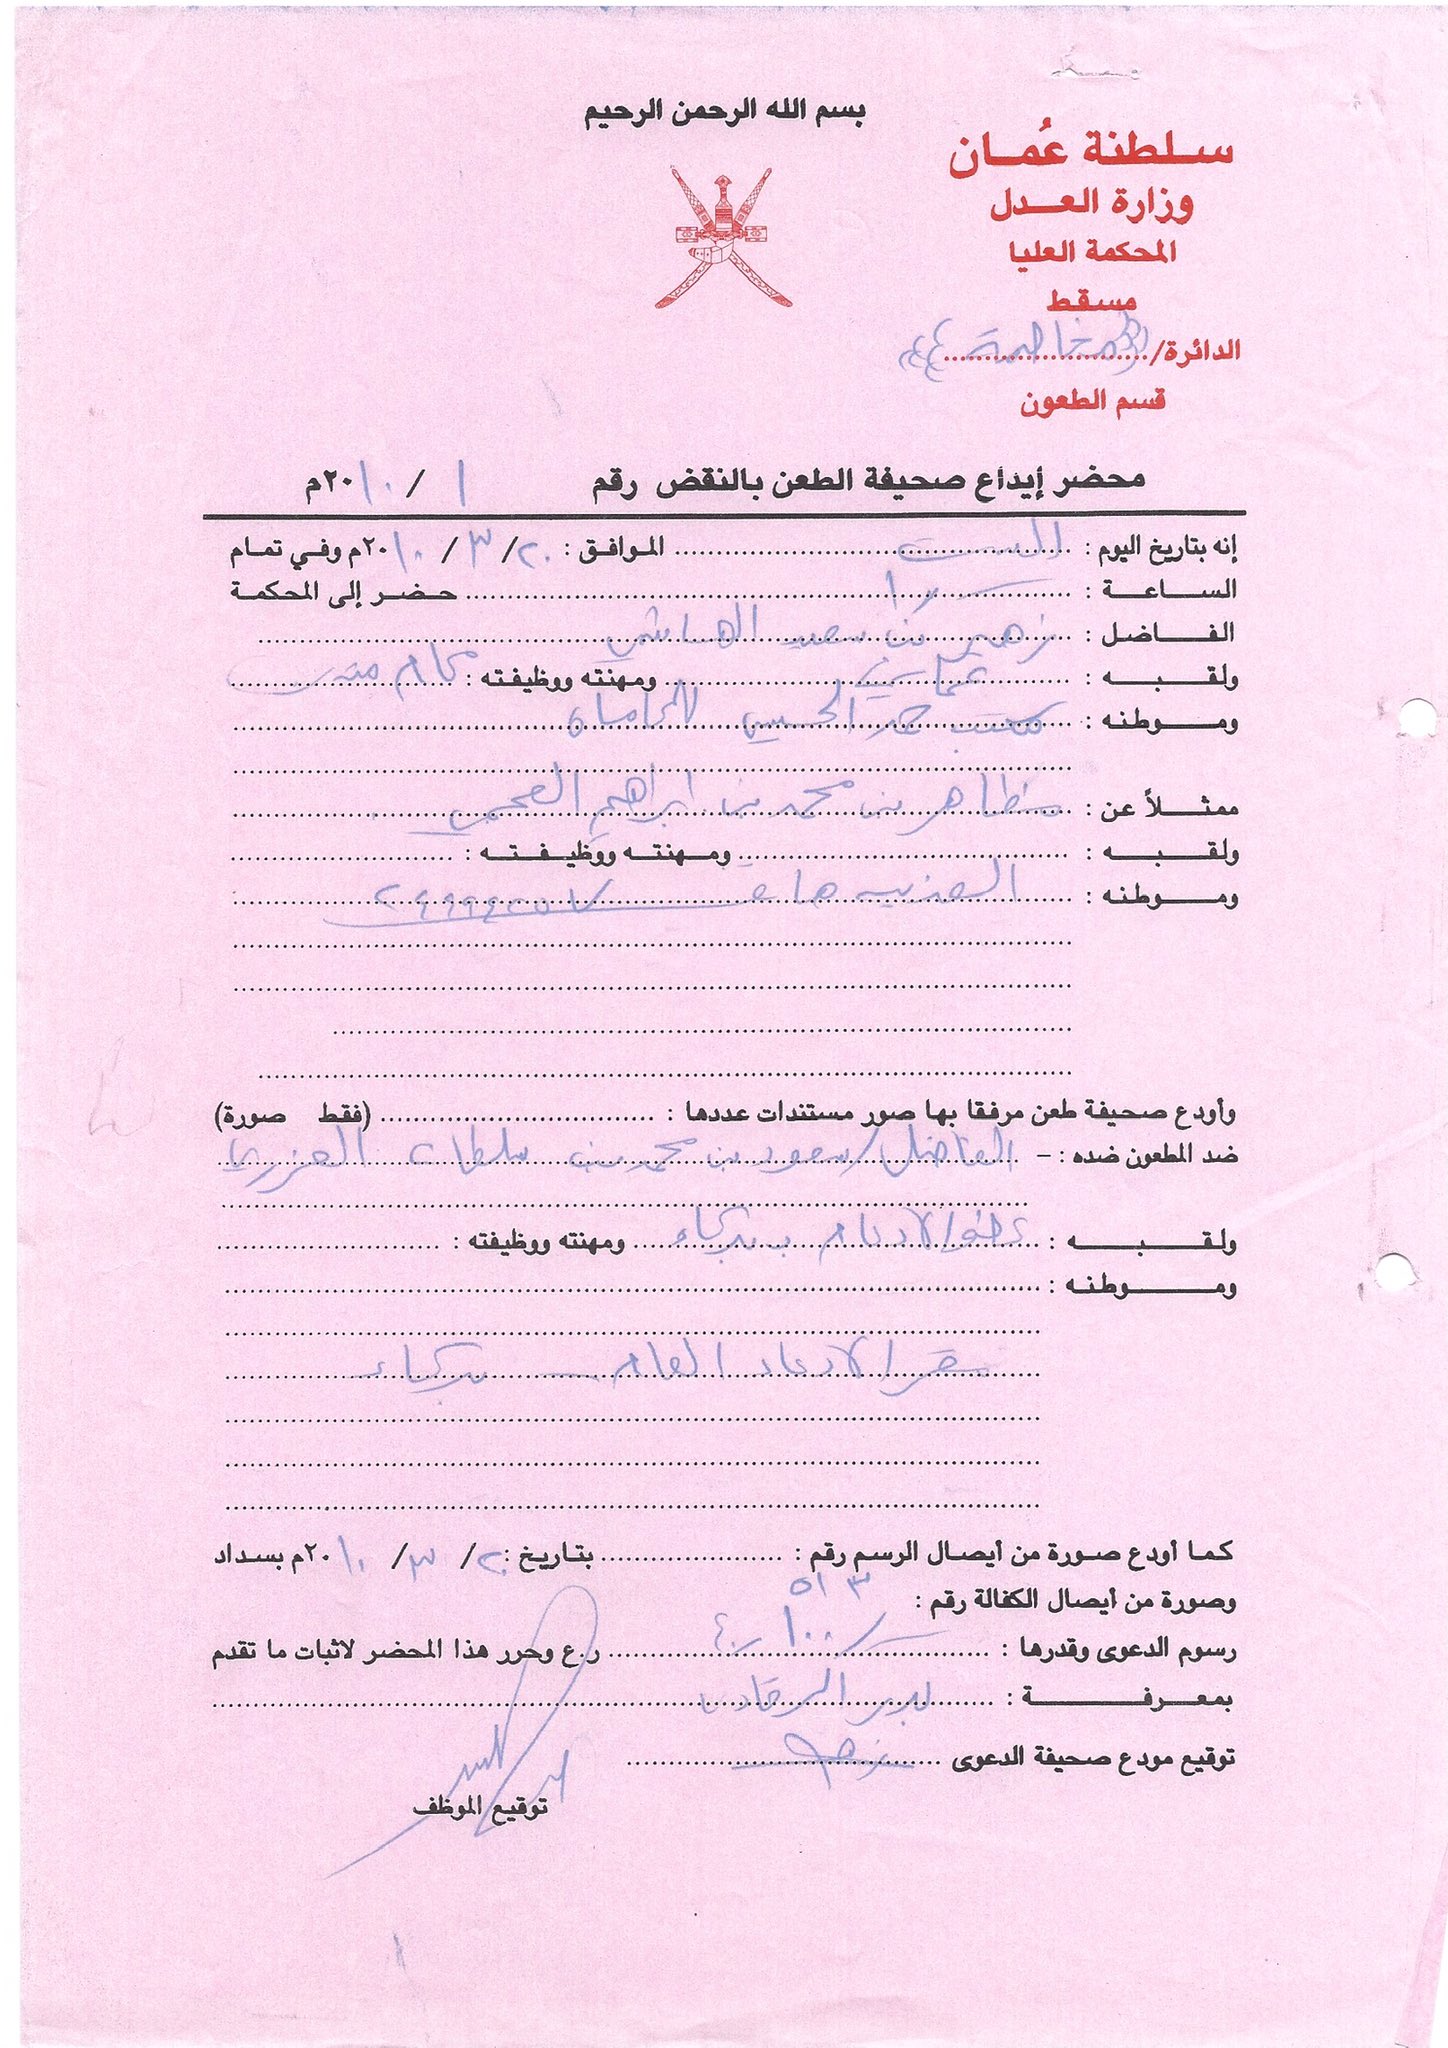 بسم الله الرحمن الرحيم
سلطنة عُمان
وزارة العدل
المحكمة العليا
مسقط
الدائرة/ مخاصمة
قسم الطعون
محضر إيداع صحيفة الطعن بالنقض رقم ١ / ٢٠١٠م
إنه بتاريخ اليوم : السبت الموافق : ٢٠/ ٣ / ٢٠١٠م وفي تمام
الساعة : ١٠ حضر إلى المحكمة
الفاضل : زهير بن سعيد الهاشمي
ولقبه : عماني ومهنته ووظيفته : محام متدرب
وموطنه : مكتب الحسيني للمحاماة
ممثلاً عن : مظاهر بن محمد بن ابراهيم العجمي
ولقبه : ومهنته ووظيفته :
وموطنه : العذيبه هاتف ٢٤٤٩٩٤٢٥٧
وأودع صحيفة طعن مرفقا بها صور مستندات عددها : (فقط صورة)
ضد المطعون ضده : – الفاضل/ سعود بن محمد بن سلطان العزري
ولقبه : عضو الادعاء ببركاء ومهنته ووظيفته :
وموطنه :
مقر الادعاء العام – بركاء
كما أودع صورة من أيصال الرسم رقم : بتاريخ : ٢٠/ ٣/ ٢٠١٠م بسداد
وصورة من أيصال الكفالة رقم : ٥١٣
رسوم الدعوى وقدرها : ر.ع وحرر هذا المحضر لاثبات ما تقدم
بمعرفة : بدر الرقادي
توقيع مودع صحيفة الدعوى
توقيع الموظف